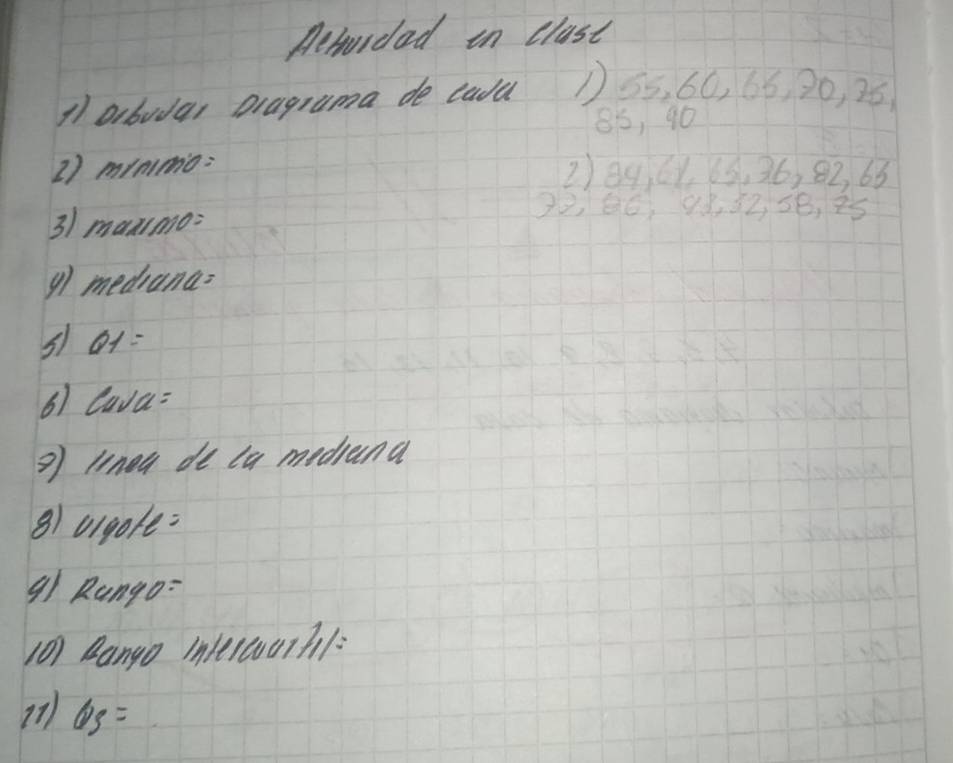 Actividad en clase
1) Dibujar Diagrama de caja
1) 55, 60, 65, 70, 75,
85, 90
2) minimo=
2) 84, 61, 65, 76, 82, 65
77, 86, 52, 58, 75
3) maximo=
4) mediana=
5) Q1=
6) Caja=
7) linea de la mediana
8) vigote=
9) Rango=
10) Rango intercuartil=
11) Q3=